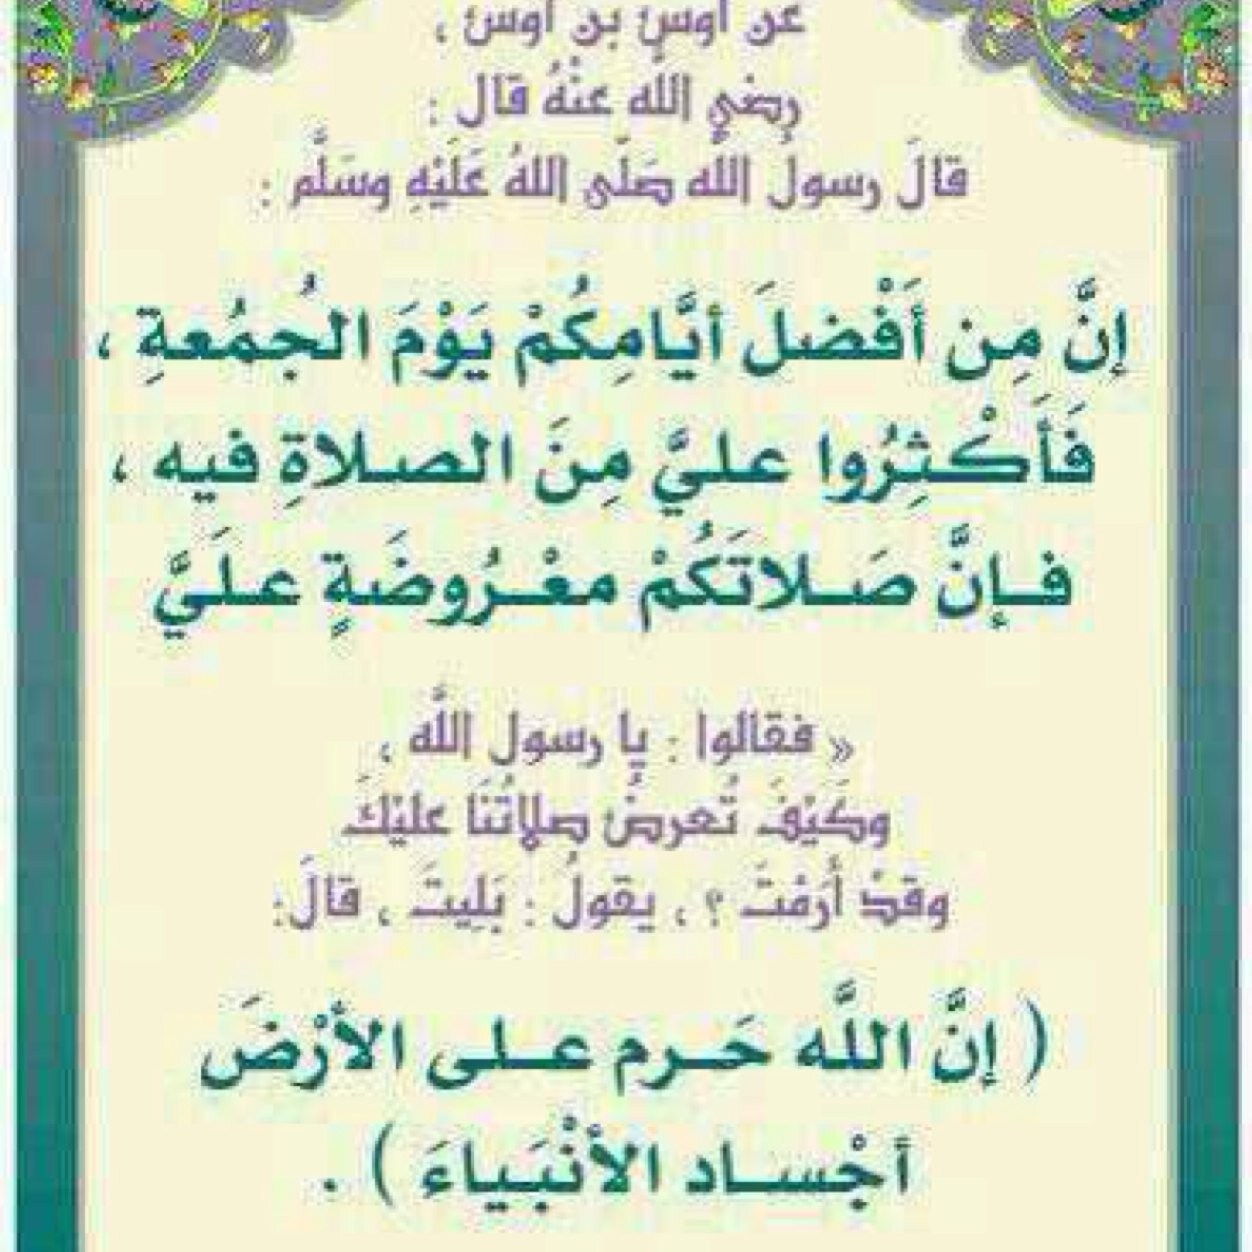 عن أوسٍ بن أوسٍ ،
رضي الله عنْهُ قال :
قالَ رسولُ اللَّه صَلّى اللهُ عَلَيْهِ وسَلَّم :
إنَّ مِن أَفْضلَ أيَّامِكُمْ يَوْمَ الجُمُعةِ ،
فَأَكْثِرُوا عليَّ مِنَ الصلاةِ فيه ،
فإنَّ صَلاتَكُمْ معْرُوضَةٍ علَيَّ
« فقالوا : يا رسول اللَّه ،
وكَيْفَ تُعرضُ صلاتُنَا عليْكَ
وقدْ أرَمْتَ ؟ ، يقولُ : بَلِيتَ ، قالَ:
( إنَّ اللَّه حَرم على الأرْضَ
أجْساد الأنْبَياءَ ) .